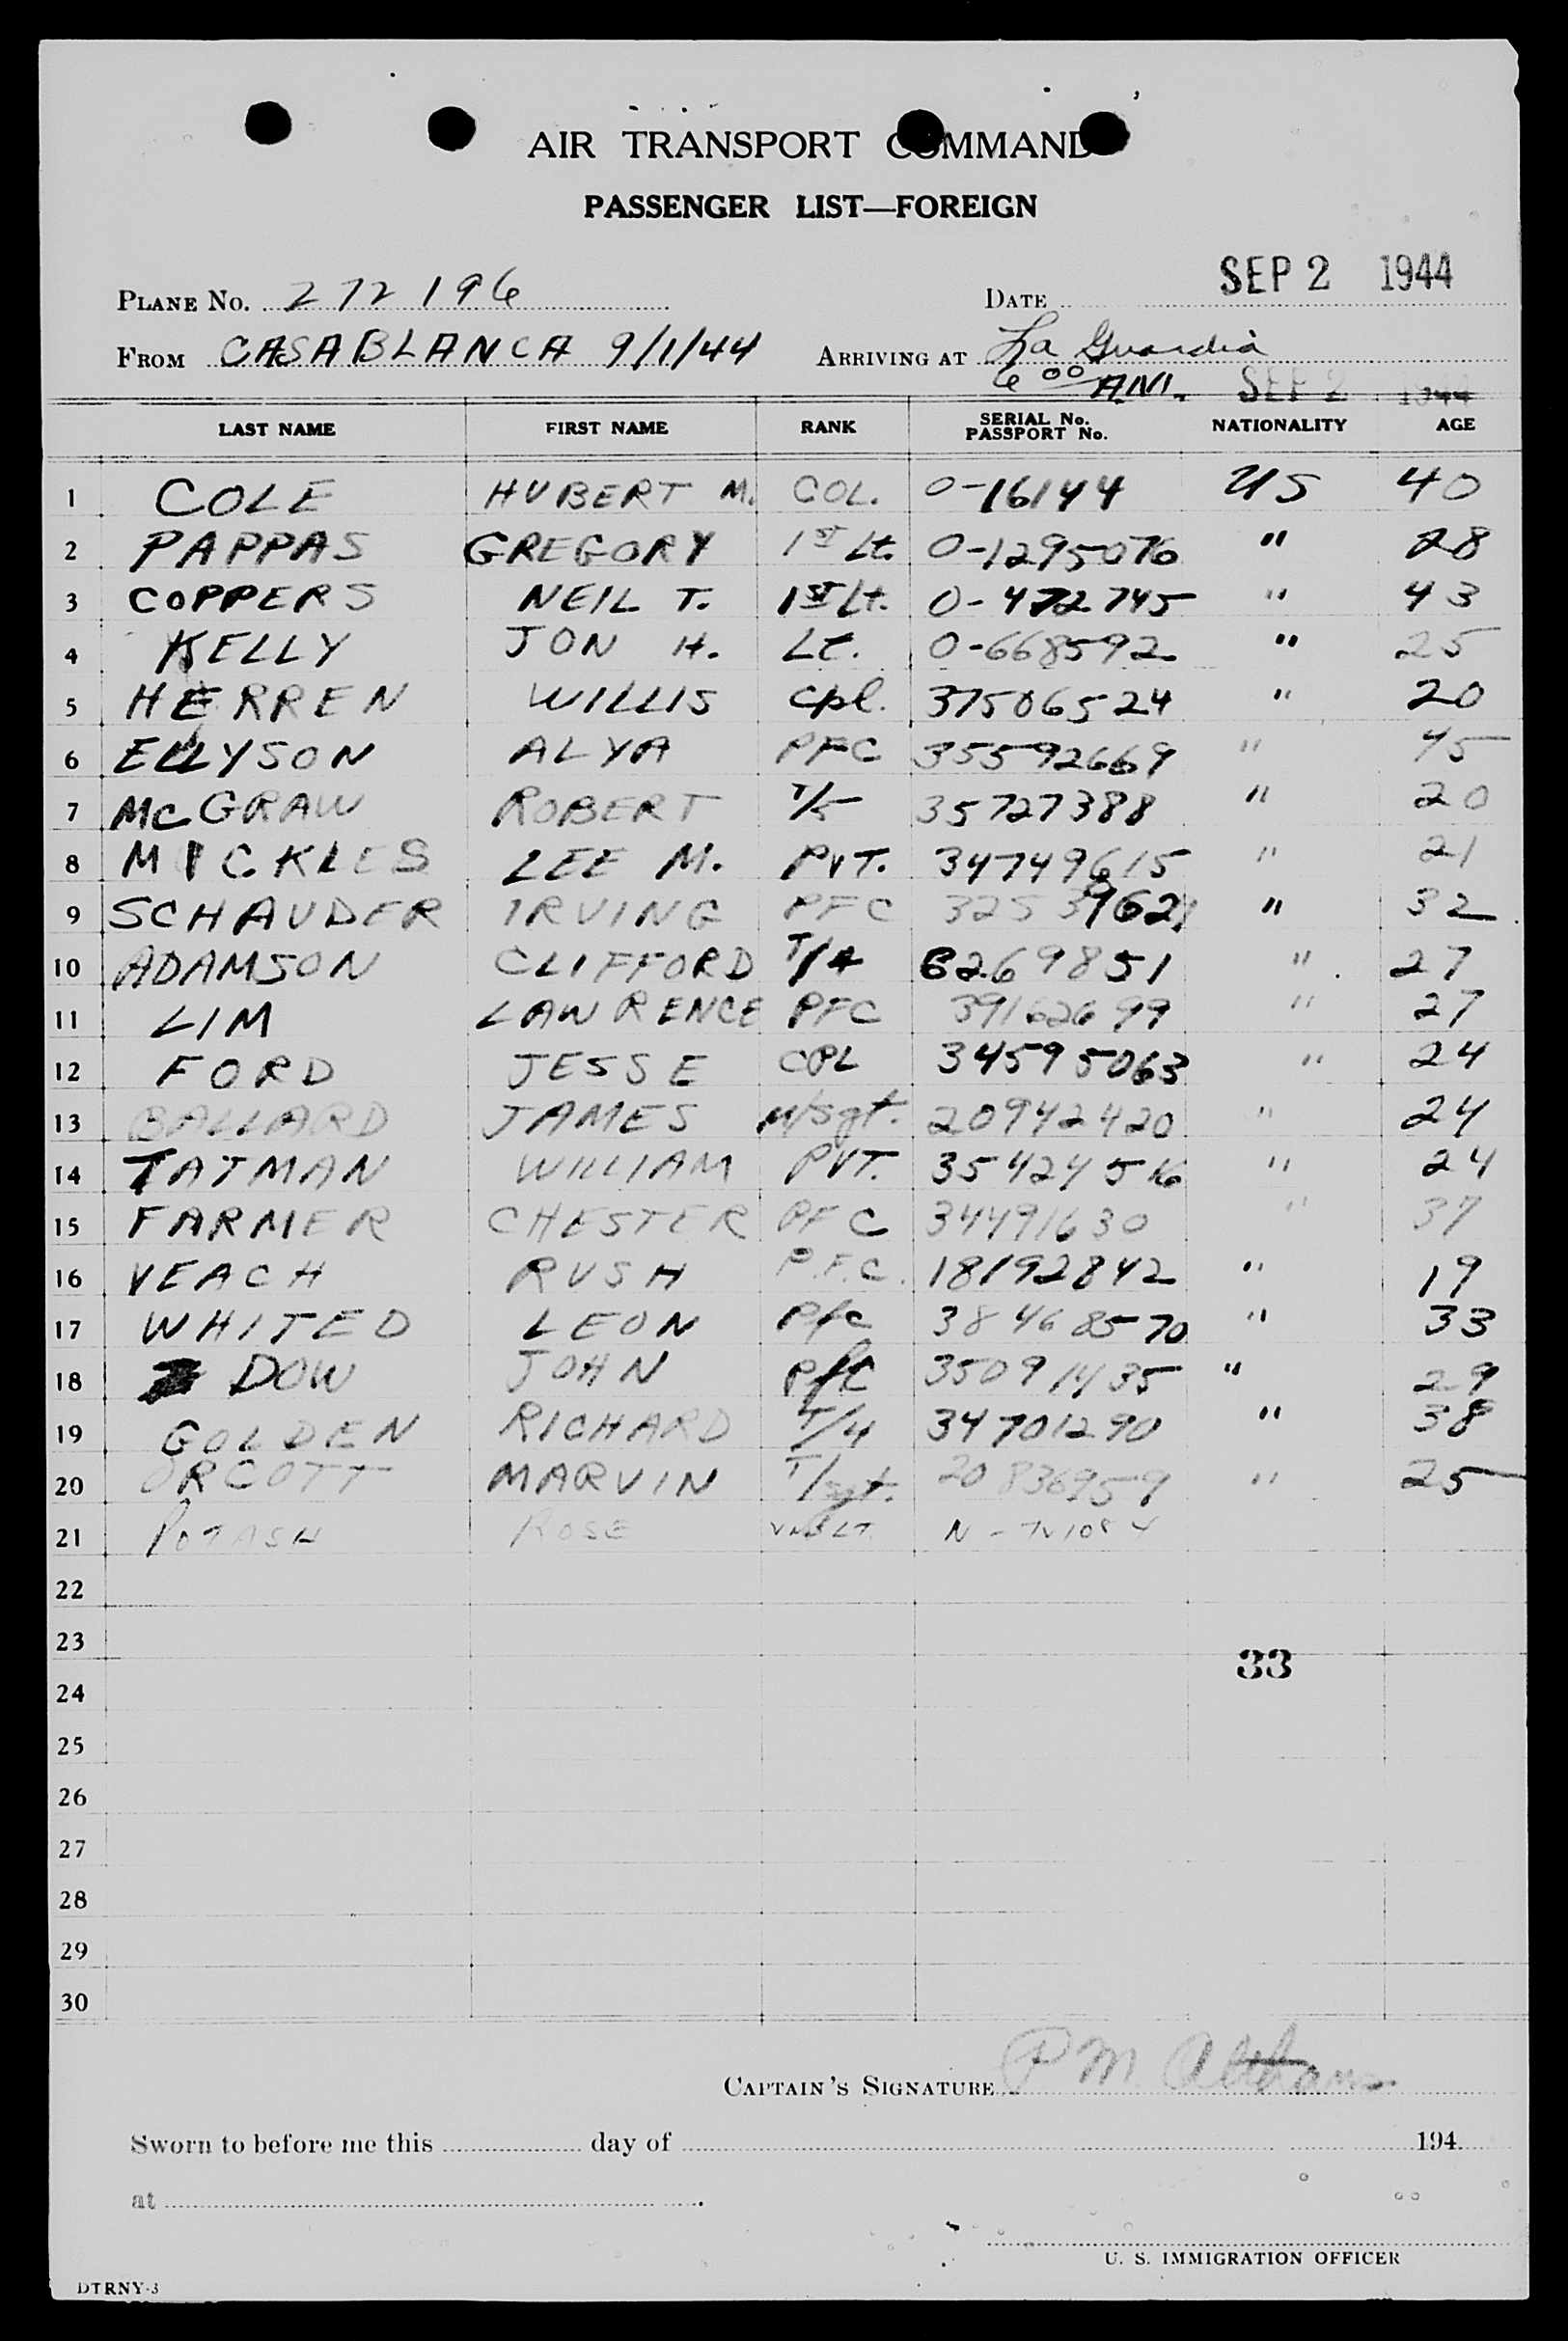 AIR TRANSPORT COMMAND
PASSENGER LIST—FOREIGN
SEP 2 1944
PLANE No. 272196 DATE
FROM CASABLANCA 9/1/44 ARRIVING AT La Guardia
6 00 A.M. SEP 2 1944
LAST NAME FIRST NAME RANK SERIAL No. PASSPORT No. NATIONALITY AGE
1 COLE HUBERT M. COL. O-16144 US 40
2 PAPPAS GREGORY 1st Lt. O-1295076 " 28
3 COPPERS NEIL T. 1st Lt. O-472745 " 43
4 KELLY JON H. Lt. O-668592 " 25
5 HERREN WILLIS Cpl. 37506524 " 20
6 ELLYSON ALYA PFC 35592669 " 45
7 McGRAW ROBERT T/5 35727388 " 20
8 MICKLES LEE M. PVT. 34749615 " 21
9 SCHAUDER IRVING PFC " 32
10 ADAMSON CLIFFORD T/4 6269851 " 27
11 LIM LAWRENCE PFC 39162699 " 27
12 FORD JESSE CPL 34595063 " 24
13 BALLARD JAMES M/Sgt. 20942420 " 24
14 TATMAN WILLIAM PVT. 35424516 " 24
15 FARMER CHESTER PFC 34491630 " 37
16 VEACH RUSH P.F.C. 18192842 " 19
17 WHITED LEON Pfc 38468570 " 33
18 DOW JOHN Pfc 35091435 " 29
19 GOLDEN RICHARD T/4 34701290 " 38
20 ORCOTT MARVIN T/Sgt. 20836959 " 25
21 POTASH ROSE LT.
22
23
33
24
25
26
27
28
29
30
CAPTAIN'S SIGNATURE P M
Sworn to before me this day of 194
at
U. S. IMMIGRATION OFFICER
DTRNY-3